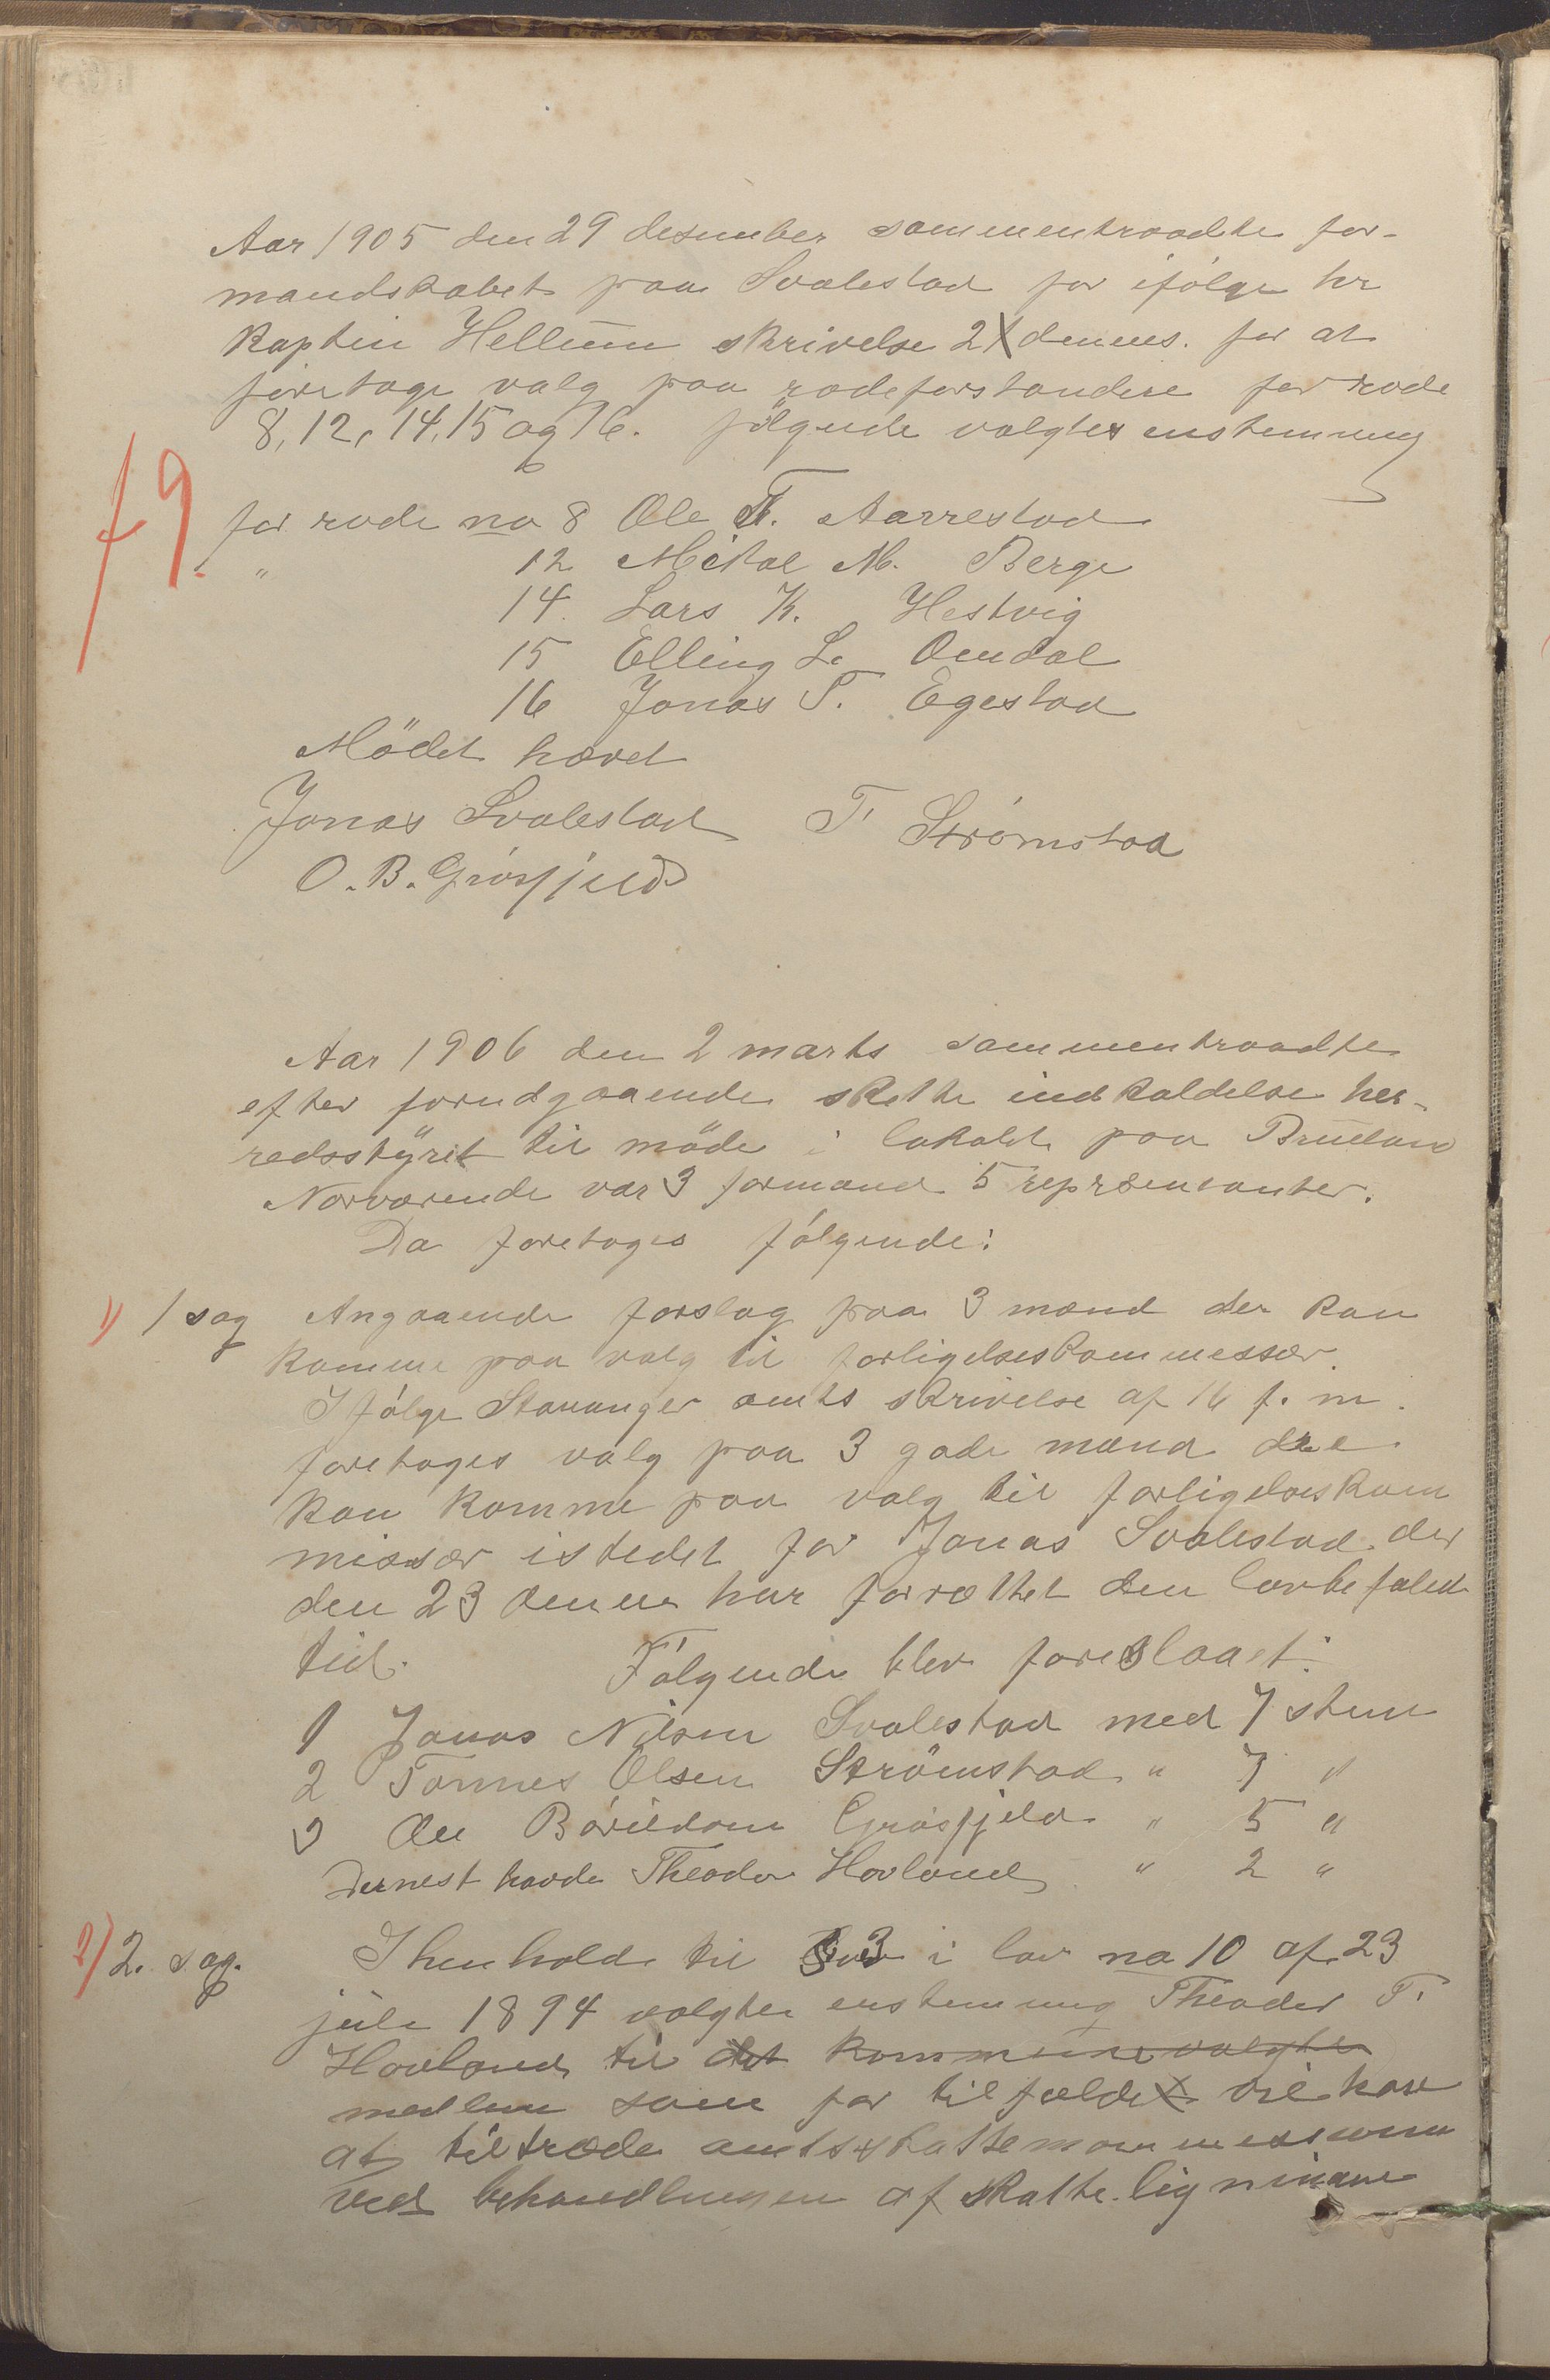 Aar 1905 den 29 desember sammentraadte for-
mandskabet paa Svalestad for ifølge hr
kaptein Hellum skrivelse 21 dennes. for at
foretage valg paa rodeforstandere for rode
8, 12, 14, 15 og 16. følgende valgtes enstemmig
79.
for rode no 8 Ole T. Aarrestad
" 12 Mikal M. Berge
14. Lars K. Hestvig
15 Elling L. Omdal
16 Jonas T. Egestad
Mödet hævet
Jonas Svalestad T. Strømstad
O. B. Grøsfjeld
Aar 1906 den 2 marts sammentraadte
efter forudgaaende skette indkaldelse her-
redsstyret til möde i lokalet paa Brueland
Nærværende var 3 formænd 5 repræsentanter.
Da foretages følgende:
1) 1 sag Angaaende forslag paa 3 mænd der kan
komme paa valg til forligelseskommessær.
I følge Stavanger amts skrivelse af 16 f. m.
foretages valg paa 3 gode mænd der
kan komme paa valg til forligelseskom
missær istedet for Jonas Svalestad der
den 23 dennes har forrettet den lovbefalede
tid. Følgende blev foreslaaet:
1 Jonas Nilsen Svalestad med 7 stem
2 Tønnes Olsen Strömstad " 7 "
3 Ole Bårildsen Grøsfjeld " 5 "
Dernest havde Theodor Hovland " 2 "
2) 2. sag. I henhold til § 3 i lov no 10 af 23
juli 1894 valgtes enstemmig Theodor T.
Hovland til det kommunevalgte
medlem som for tilfældet vil have
at tiltræde amtsskattekommessionen
ved behandlingen af skatte ligningen